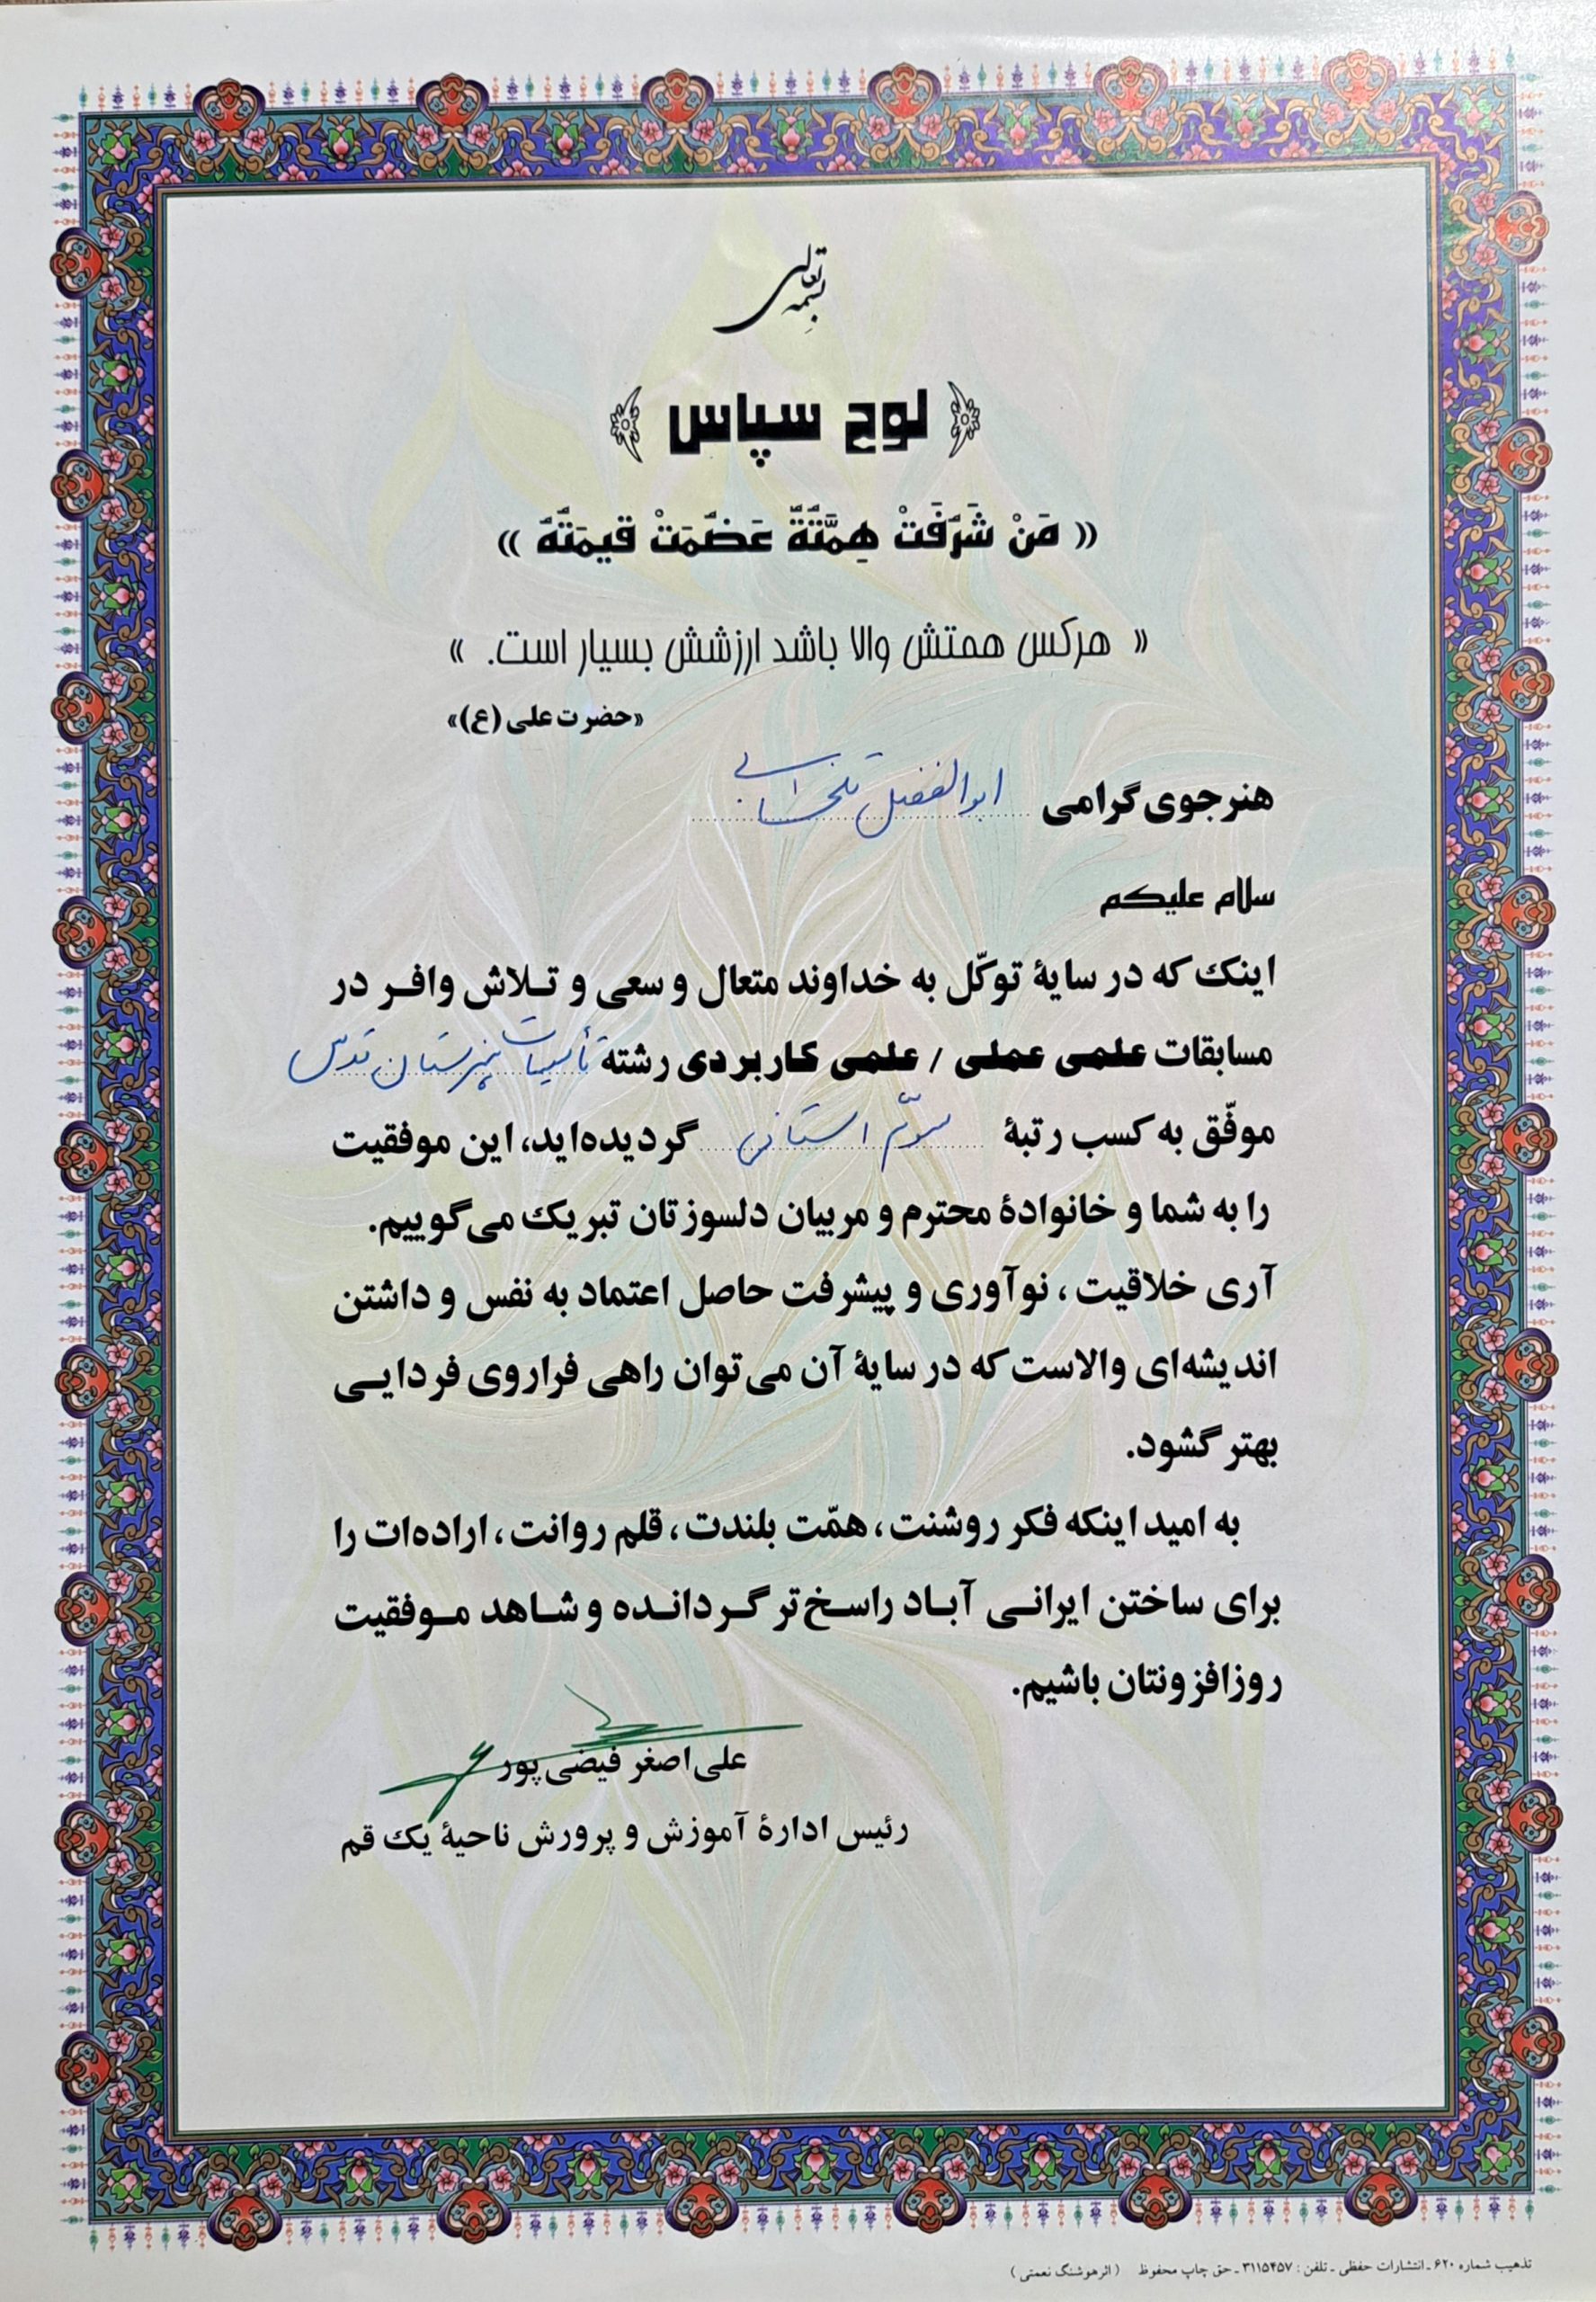 بسمه تعالی
لوح سپاس
« مَنْ شَرَُفَتْ هِمَّتَُهُ عَضَُمَتْ قیمَتَُهُ »
« هرکس همتش والا باشد ارزشش بسیار است. »
«حضرت علی (ع)»
هنرجوی گرامی ابوالفضل
سلام علیکم
اینک که در سایۀ توکّل به خداوند متعال و سعی و تلاش وافر در
مسابقات علمی عملی / علمی کاربردی رشته تأسیسات هنرستان قدس
موفّق به کسب رتبۀ سوّم استان گردیده‌اید، این موفقیت
را به شما و خانوادۀ محترم و مربیان دلسوزتان تبریک می‌گوییم.
آری خلاقیت، نوآوری و پیشرفت حاصل اعتماد به نفس و داشتن
اندیشه‌ای والاست که در سایۀ آن می‌توان راهی فراروی فردایی
بهتر گشود.
به امید اینکه فکر روشنت، همّت بلندت، قلم روانت، اراده‌ات را
برای ساختن ایرانی آباد راسخ‌تر گردانده و شاهد موفقیت
روزافزونتان باشیم.
علی‌اصغر فیضی‌پور
رئیس ادارۀ آموزش و پرورش ناحیۀ یک قم
تذهیب شماره ۶۲۰ ـ انتشارات حفظی ـ تلفن : ۳۱۱۵۴۵۷ ـ حق چاپ محفوظ (اثرهوشنگ نعمتی)